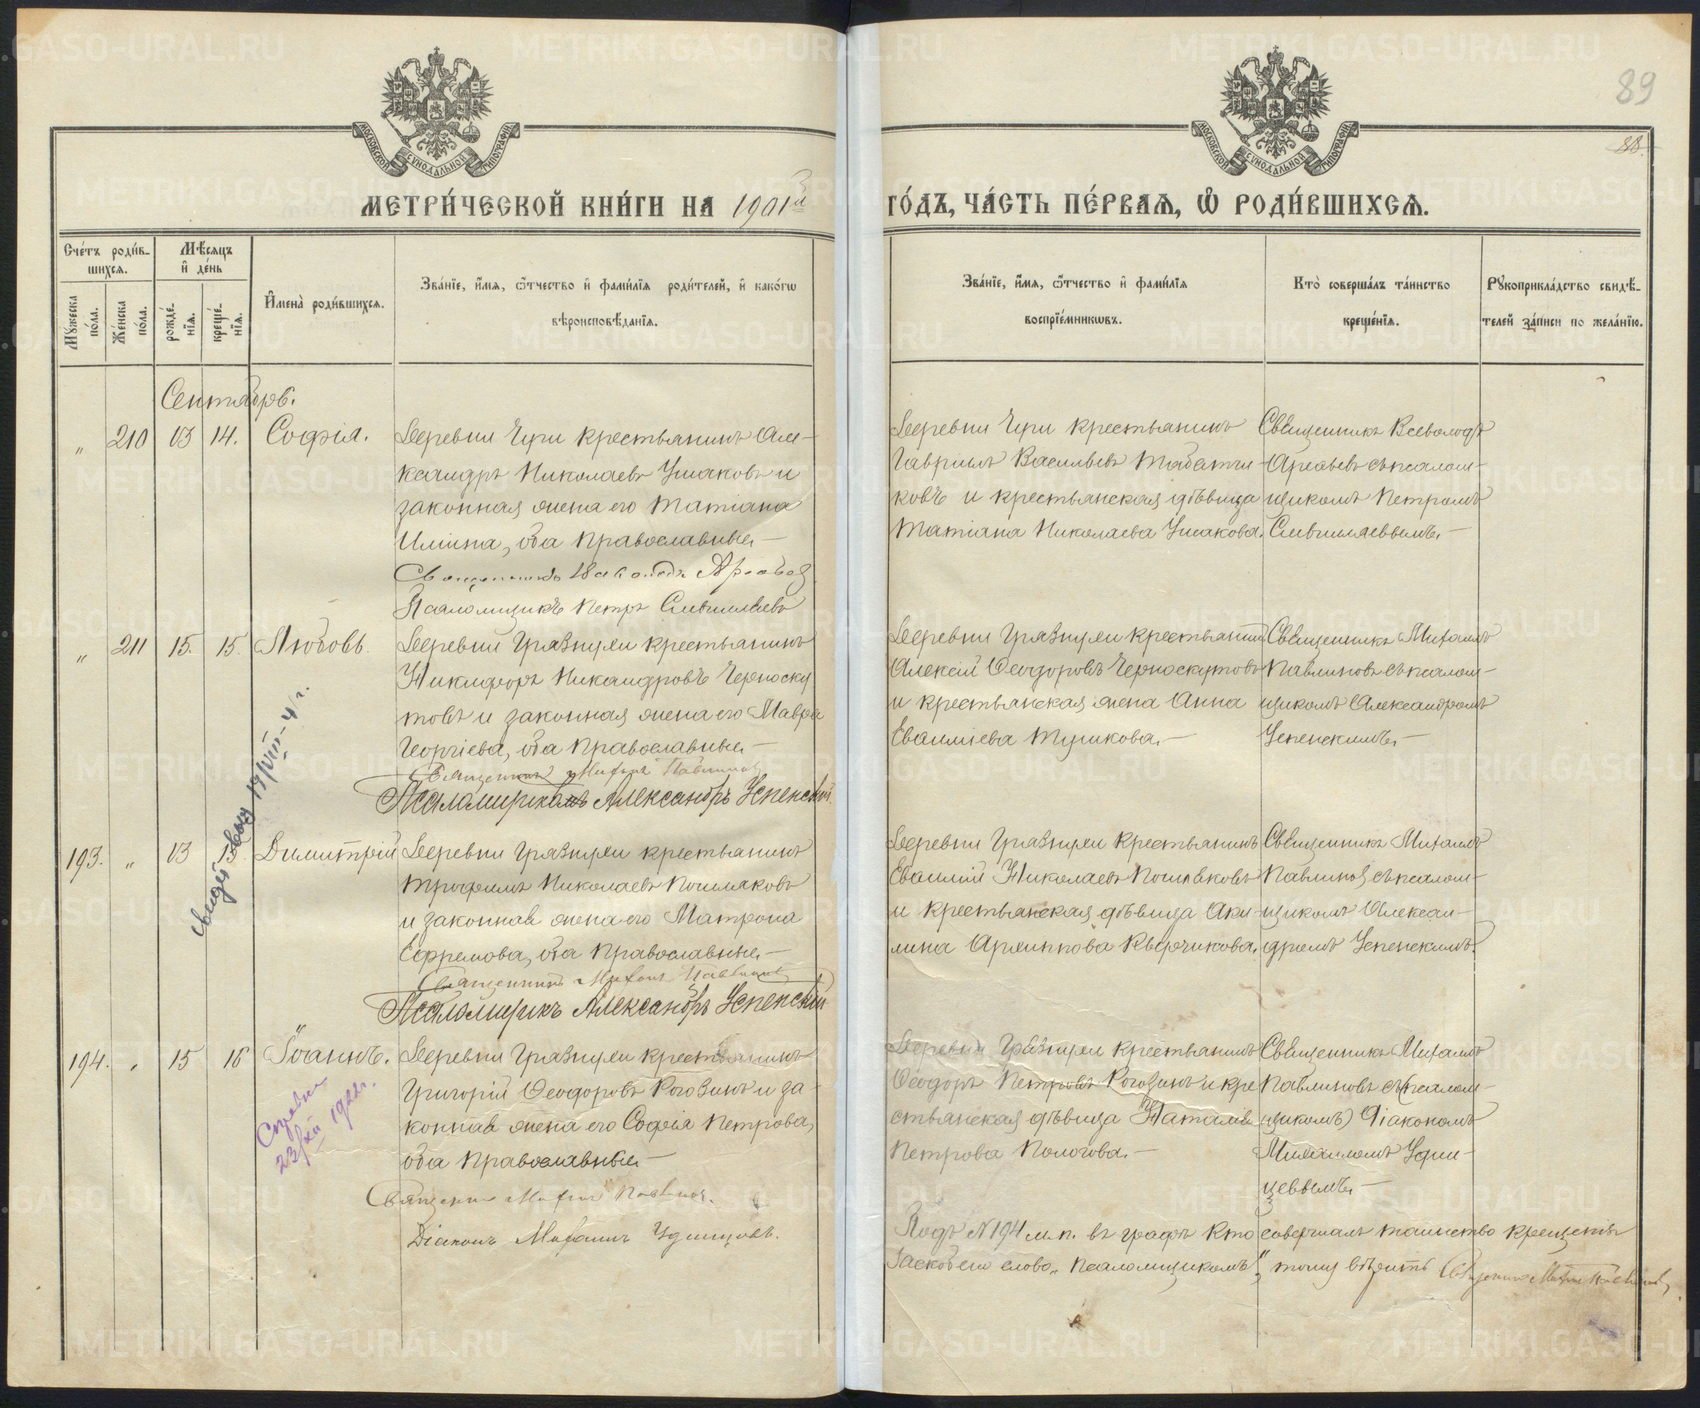 МЕТРИ́ЧЕСКОЙ КНИ́ГИ НА 1901й
ГО́ДЪ, ЧА́СТЬ ПЕ́РВАѦ, Ѽ РОДИ́ВШИХСѦ.
89
88.
МОСКОВСКОЙ СѴНОДАЛЬНОЙ ТИПОГРАФІИ
МОСКОВСКОЙ СѴНОДАЛЬНОЙ ТИПОГРАФІИ
Сче́тъ роди́в-
шихсѧ.
Мꙋ́жеска
по́ла.
Же́нска
по́ла.
Мѣ́сѧцъ
и҆ де́нь
рожде́-
нїѧ.
креще́-
нїѧ.
И҆мена̀ роди́вшихсѧ.
Зва́нїе, и҆́мѧ, ѻ҆́тчество и҆ фами́лїѧ роди́телей, и҆ како́гѡ
вѣроисповѣ́данїѧ.
Зва́нїе, и҆́мѧ, ѻ҆́тчество и҆ фами́лїѧ
воспрїе́мникѡвъ.
Кто̀ соверша́лъ та́инство
креще́нїѧ.
Рꙋкоприкла́дство свидѣ́-
телей за́писи по жела́нїю.
Сентябрь.
„ 210 13 14. Софія.
Деревни Чери крестьянинъ Але-
ксандръ Николаевъ Ушаковъ и
законная жена его Татіана
Иліина, оба православные.—
Священникъ Всеволодъ Арефьев
Псаломщикъ Петръ
Деревни Чери крестьянинъ
Гавріилъ Васильевъ Табатчи-
ковъ и крестьянская дѣвица
Татіана Николаева Ушакова.
Священникъ Всеволодъ
Арефьевъ съ псалом-
щикомъ Петромъ
„ 211 15. 15. Любовь.
Деревни Грязнухи крестьянинъ
Никифоръ Никандровъ Черноску
товъ и законная жена его Мавра
Георгіева, оба православные.—
Священникъ Михаилъ Павлинов
Псаломщикъ Александръ Успенскій
Деревни Грязнухи крестьянинъ
Алексій Ѳеодоровъ Черноскутовъ
и крестьянская жена Анна
Евѳиміева Тушкова.—
Священникъ Михаилъ
Павлиновъ съ псалом-
щикомъ Александромъ
Успенскимъ.—
193. „ 13 15. Димитрій
Деревни Грязнухи крестьянинъ
Трофимъ Николаевъ Пошляковъ
и законная жена его Матрона
Ефремова, оба православные.—
Священникъ Михаил Павлинов
Псаломщикъ Александръ Успенскій
Деревни Грязнухи крестьянинъ
Николаевъ Пошляковъ
и крестьянская дѣвица Аки-
лина
Священникъ Михаилъ
Павлинов съ псалом-
щикомъ Алексан-
дромъ Успенскимъ.
194. „ 15 16 Іоаннъ.
Деревни Грязнухи крестьянинъ
Григорій Ѳеодоровъ Рогозинъ и за-
конная жена его Софія Петрова,
оба православные.—
Священникъ Михаил Павлинов.
Діаконъ Михаилъ Удинцовъ.
Деревни Грязнухи крестьянинъ
Ѳеодоръ Петровъ Рогозинъ и кре
стьянская дѣвица Наталія
Петрова Пологова.—
Священникъ Михаилъ
Павлиновъ съ (псалом-
щикомъ) Діакономъ
Михаиломъ Удин-
цевымъ.—
Подъ №194 м. п. въ графѣ кто совершалъ таинство крещенія
заскоблено слово „псаломщикомъ“, тому вѣрить Священникъ Михаил Павлинов
19/VIII-4 г.
Справка
23/XII 1922г.
METRIKI.GASO-URAL.RU